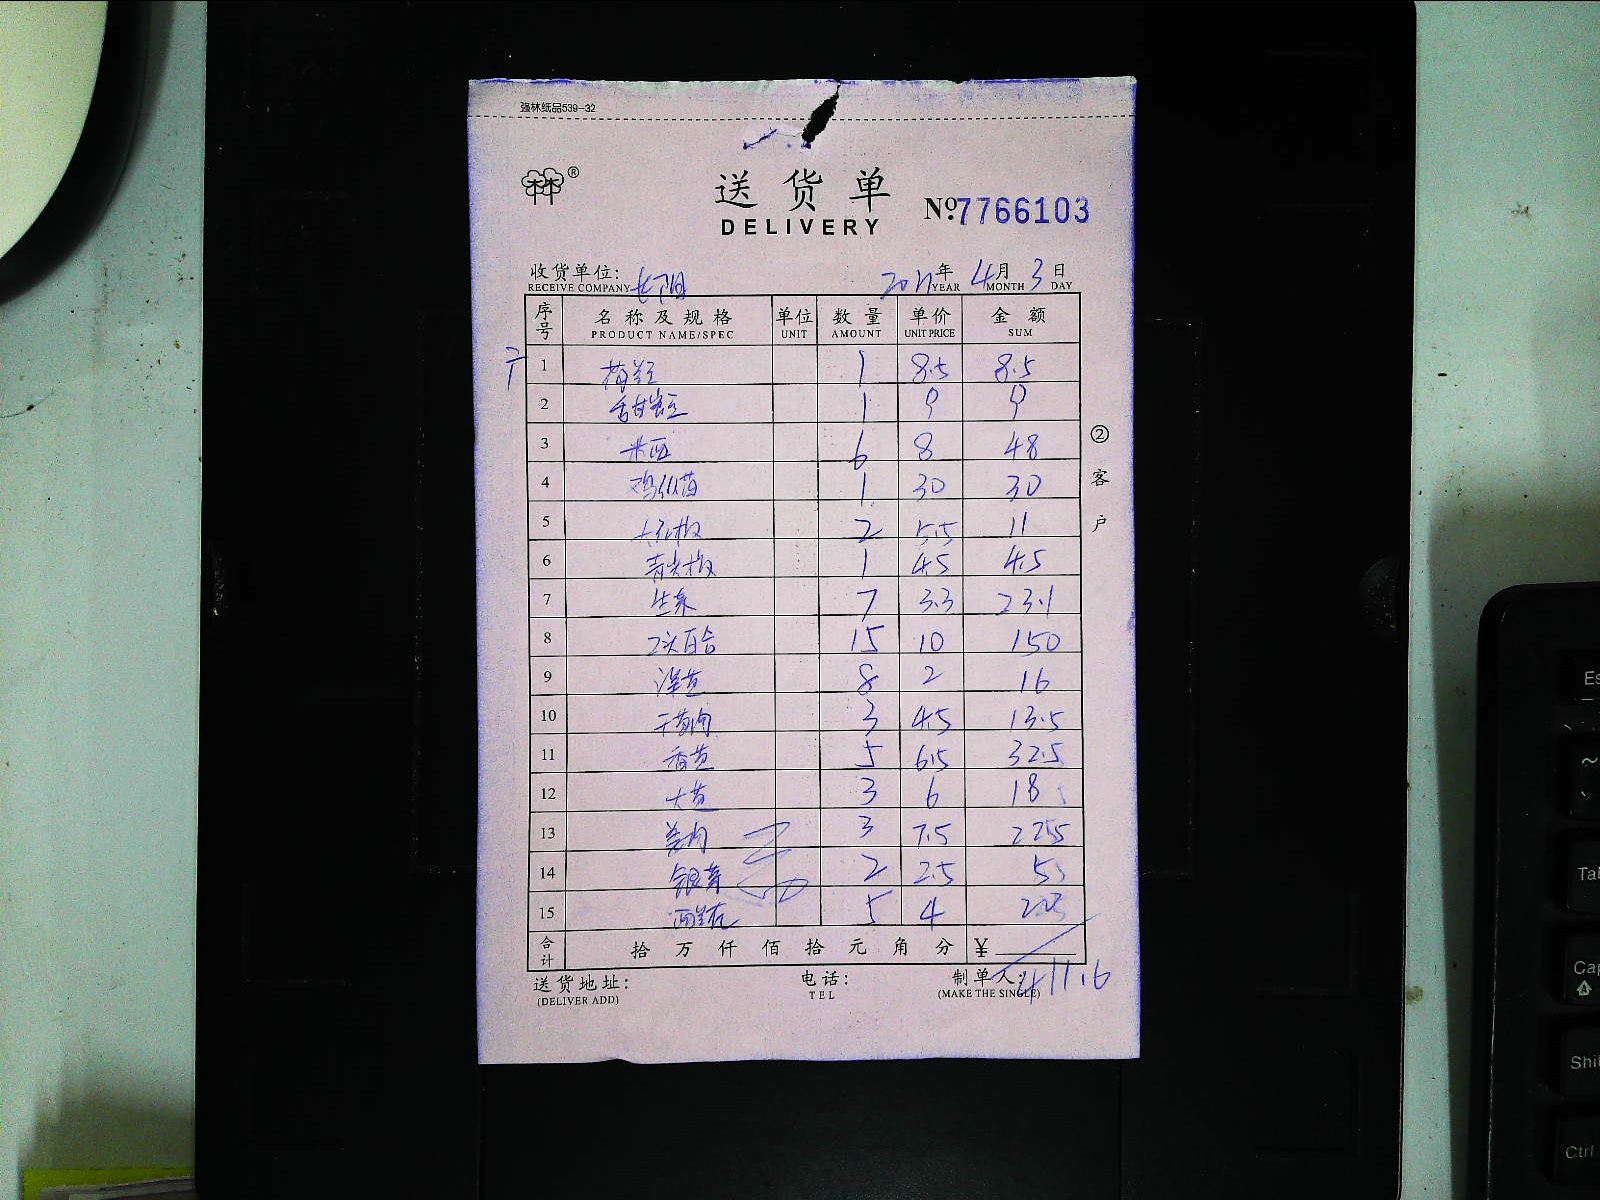 强林纸品539-32
林林®
送货单
DELIVERY
№7766103
收货单位: 长阳 2021年 4月 3日
RECEIVE COMPANY YEAR MONTH DAY
序号 名称及规格 单位 数量 单价 金额
PRODUCT NAME/SPEC UNIT AMOUNT UNIT PRICE SUM
1 1 8.5 8.5
2 1 9 9
3 6 8 48
4 1 30 30
5 2 5.5 11
6 青尖椒 1 4.5 4.5
7 生菜 7 3.3 23.1
8 百合 15 10 150
9 8 2 16
10 3 4.5 13.5
11 香菇 5 6.5 32.5
12 3 6 18
13 姜肉 3 7.5 22.5
14 银芽 2 2.5 5
15 西兰花 5 4 20
合计 拾 万 仟 佰 拾 元 角 分 ¥
411.6
送货地址: 电话: 制单人:
(DELIVER ADD) TEL (MAKE THE SINGLE)
②客户
Es
~
Tab
Cap
Shi
Ctrl